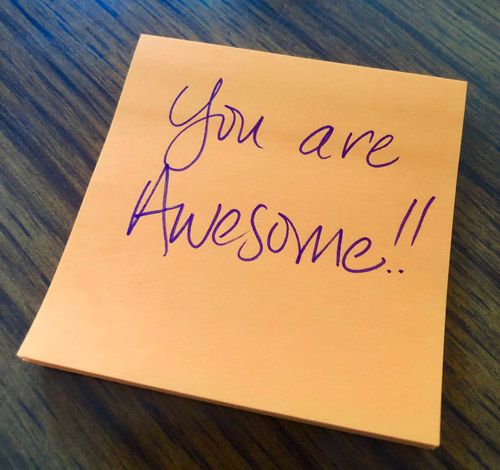 You are
Awesome!!